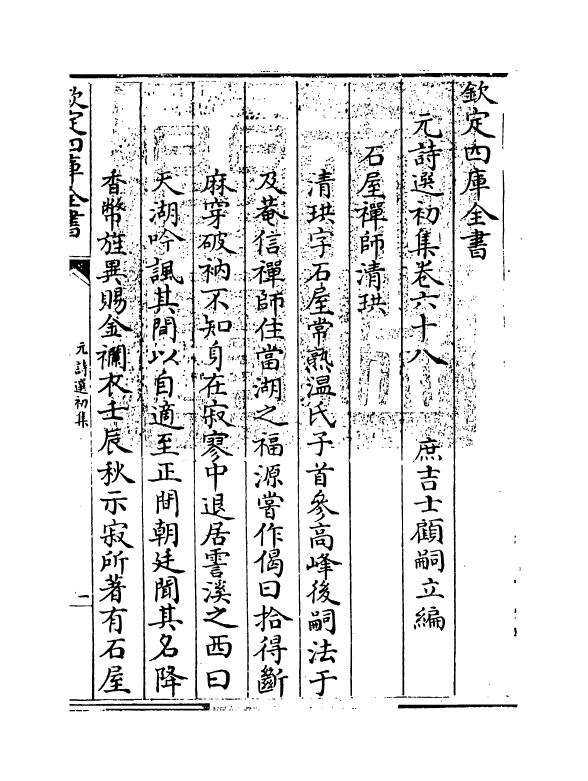 欽定四庫全書
元詩選初集卷六十八　庶吉士顧嗣立編
石屋禪師清珙
清珙字石屋常熟温氏子首參高峰後嗣法于
及菴信禪師住當湖之福源嘗作偈曰拾得斷
麻穿破衲不知身在寂寥中退居霅溪之西曰
天湖吟諷其間以自適至正間朝廷聞其名降
香幣旌異賜金襴衣壬辰秋示寂所著有石屋
欽定四庫全書
元詩選初集
一